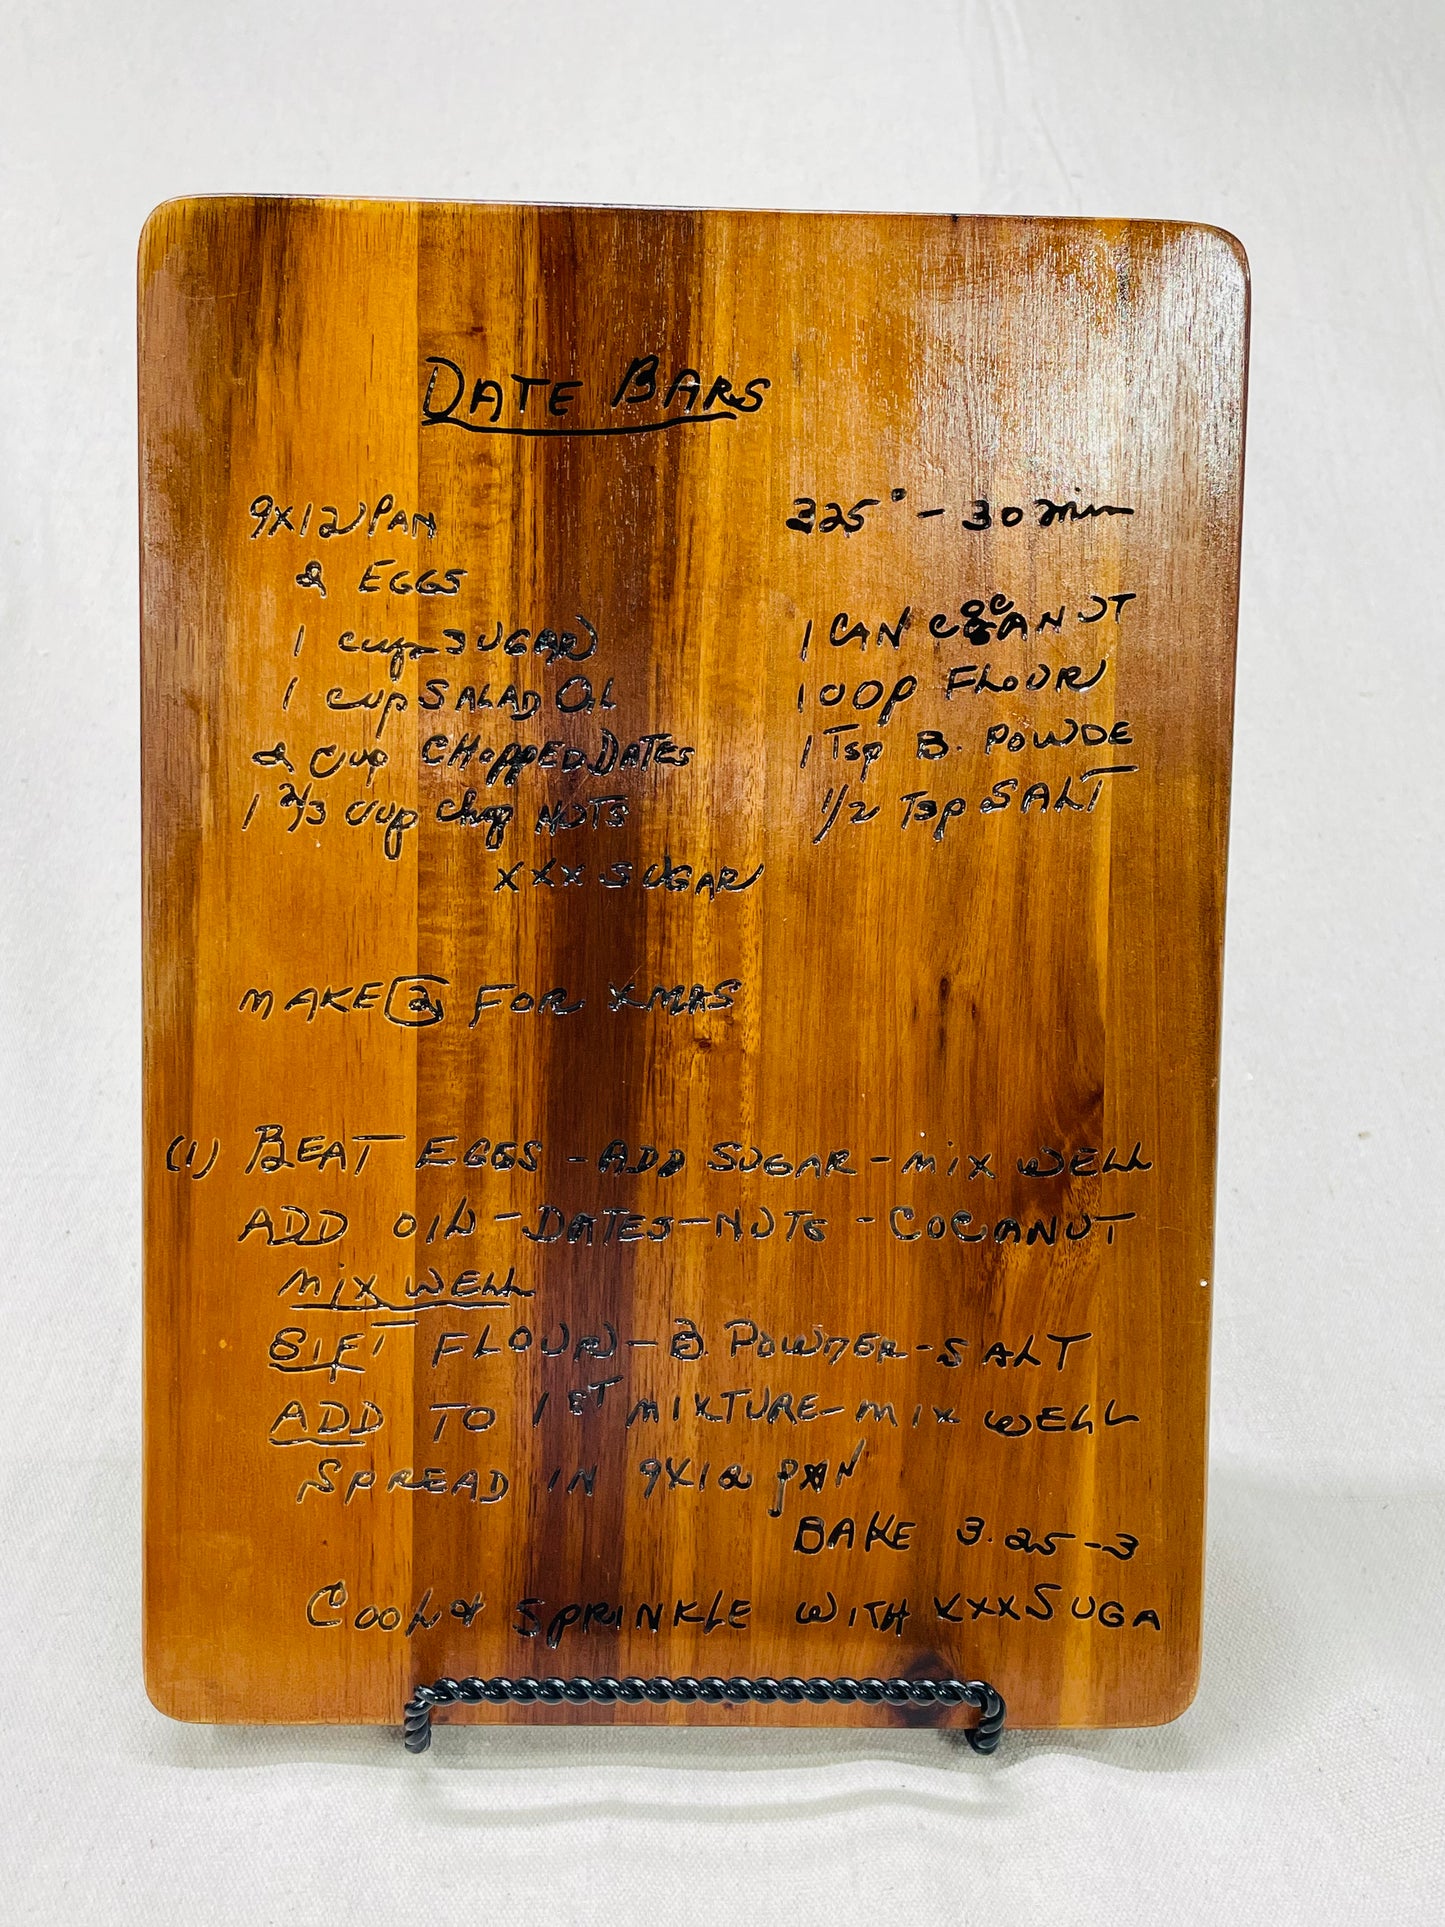 DATE BARS
9X12 PAN 325° - 30 min
2 EGGS
1 cup SUGAR 1 CAN COCANUT
1 cup SALAD OIL FLOUR
2 cup CHOPPED DATES 1 Tsp B. POWDE
1 2/3 cup chop NUTS 1/2 Tsp SALT
XXX SUGAR
MAKE 2 FOR XMAS
(1) BEAT EGGS - ADD SUGAR - MIX WELL
ADD OIL - DATES - NUTS - COCANUT
MIX WELL
SIFT FLOUR - B. POWDER - SALT
ADD TO 1ST MIXTURE - MIX WELL
SPREAD IN 9X12 PAN
BAKE 325 - 3
COOL & SPRINKLE WITH XXX SUGA